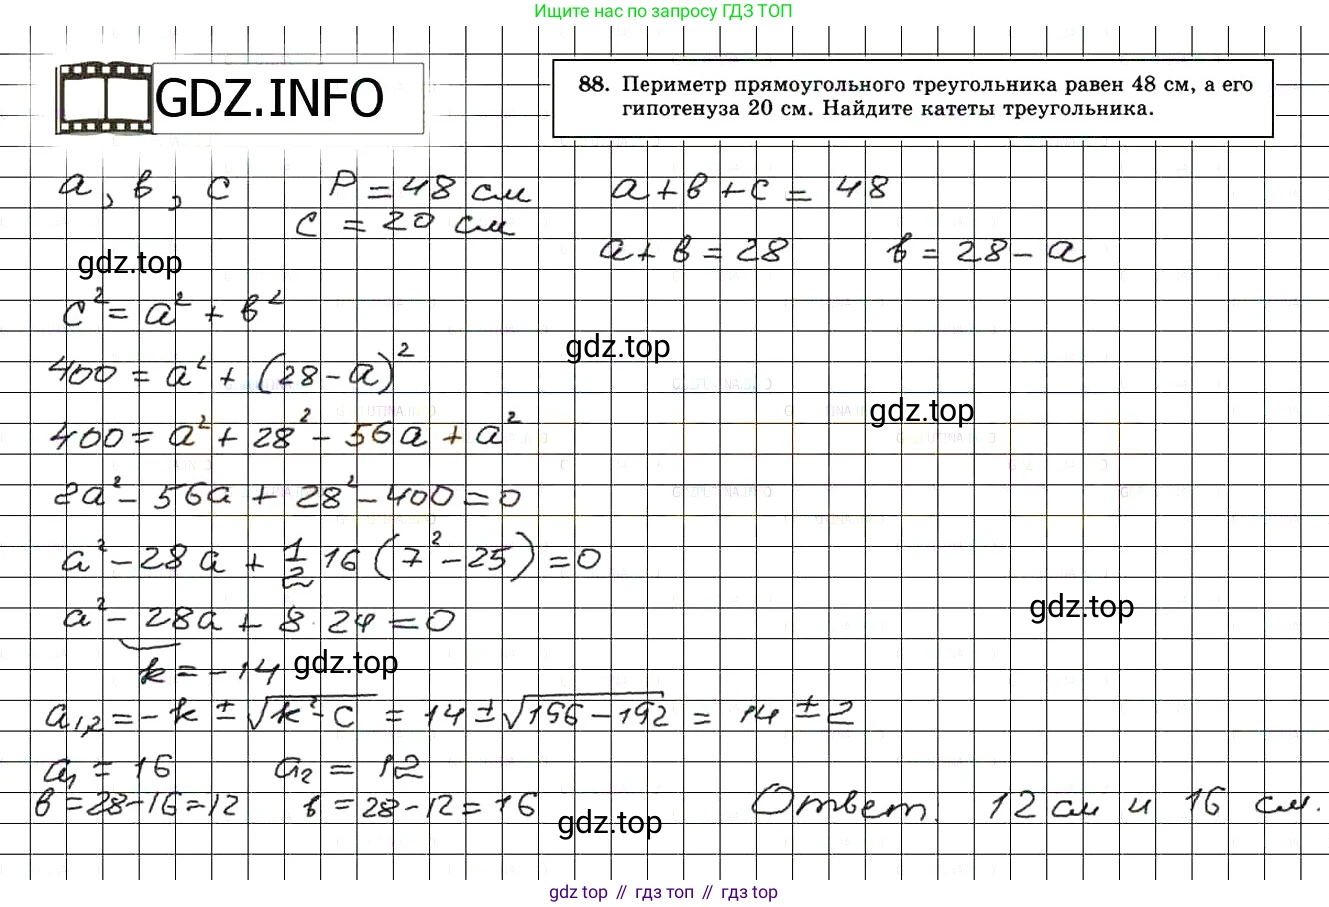 Ищите нас по запросу ГДЗ ТОП
GDZ.INFO
88. Периметр прямоугольного треугольника равен 48 см, а его
гипотенуза 20 см. Найдите катеты треугольника.
a, b, c P = 48 см a + b + c = 48
c = 20 см
a + b = 28 b = 28 - a
gdz.top
c² = a² + b²
gdz.top
400 = a² + (28 - a)²
gdz.top
400 = a² + 28² - 56a + a²
2a² - 56a + 28² - 400 = 0
a² - 28a + 1/2 16 (7² - 25) = 0
gdz.top
a² - 28a + 8 · 24 = 0
k = -14
gdz.top
a₁,₂ = -k ± √k² - c = 14 ± √196 - 192 = 14 ± 2
a₁ = 16 a₂ = 12
b = 28 - 16 = 12 b = 28 - 12 = 16 Ответ: 12 см и 16 см.
gdz.top
gdz top // гдз топ // гдз top